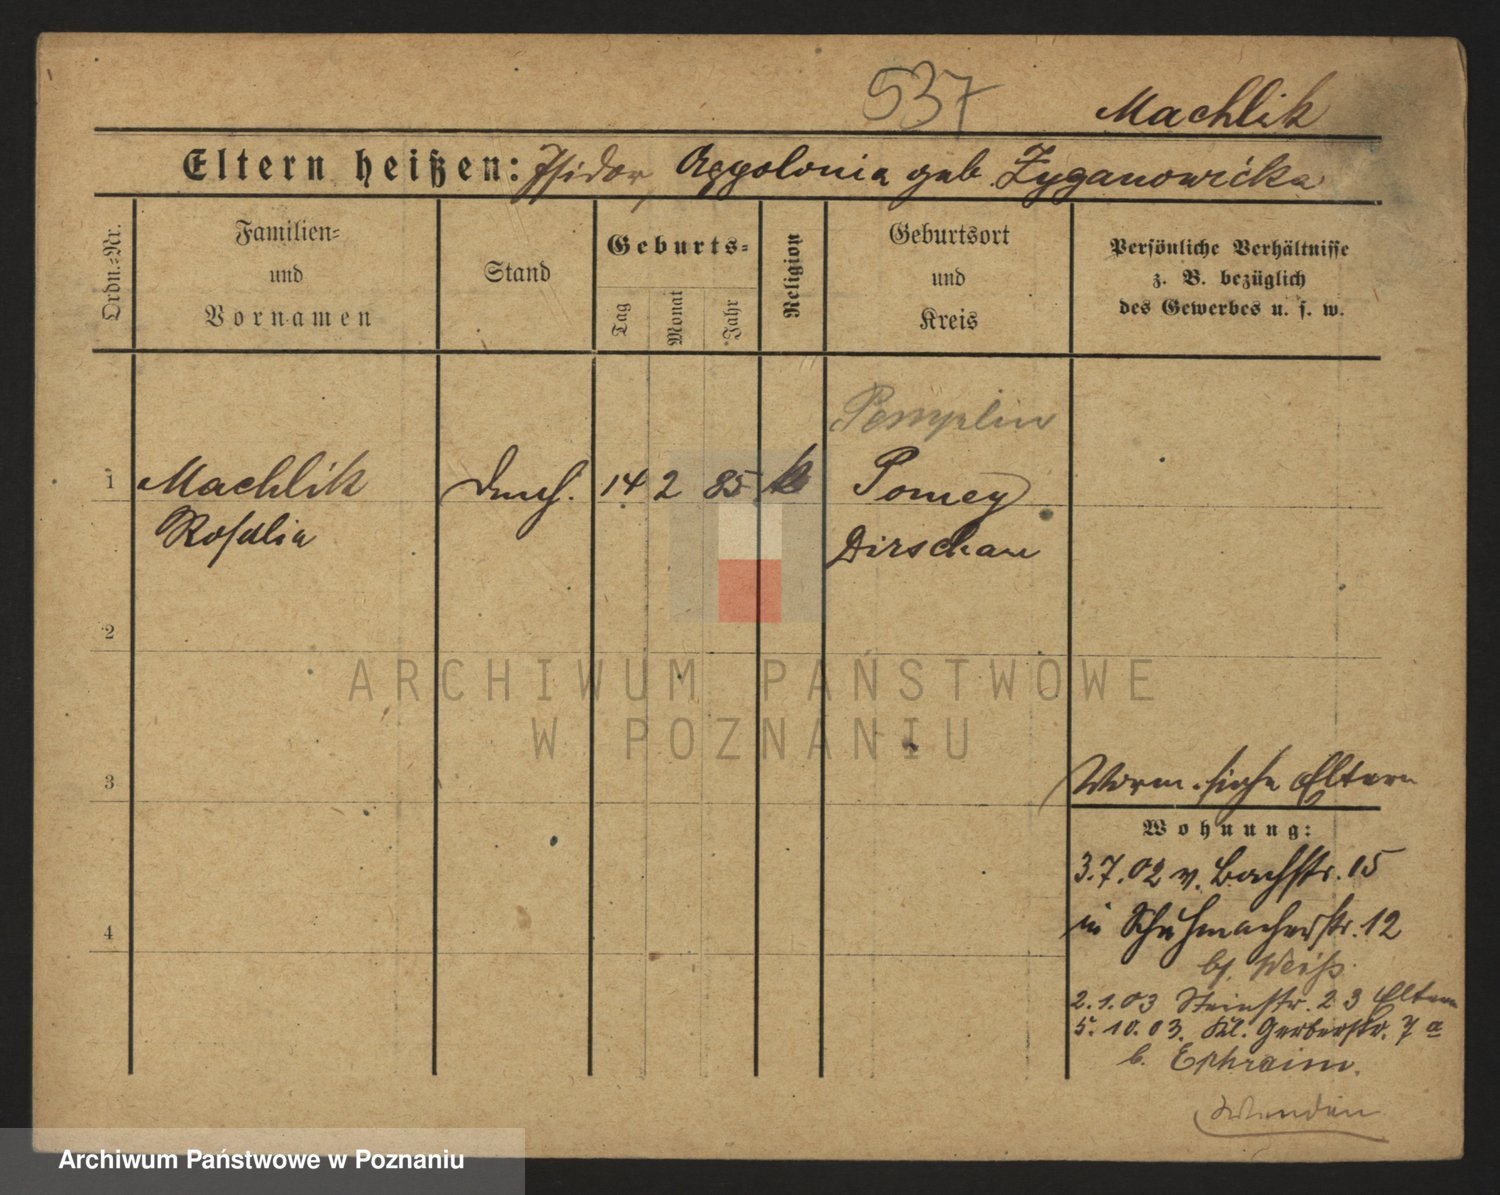 537
Machlik
Eltern heißen: Isidor, Appolonia geb. Zyganowicka
Ordn.-Nr.
Familien-
und
Vornamen
Stand
Geburts-
Tag
Monat
Jahr
Religion
Geburtsort
und
Kreis
Persönliche Verhältnisse
z. B. bezüglich
des Gewerbes u. s. w.
Pemplin
1 Machlik 14 2 85 k Pomey
Rosalia Dirschau
2
3
4
Vorm. siehe Eltern
Wohnung:
3.7.02 v. Bachstr. 15
in Schuhmacherstr. 12
bf. Weiß
2.1.03 Steinstr. 23 Eltern
5.10.03. Kl. Gerberstr. 7a
b. Ephraim.
ARCHIWUM PAŃSTWOWE
W POZNANIU
Archiwum Państwowe w Poznaniu